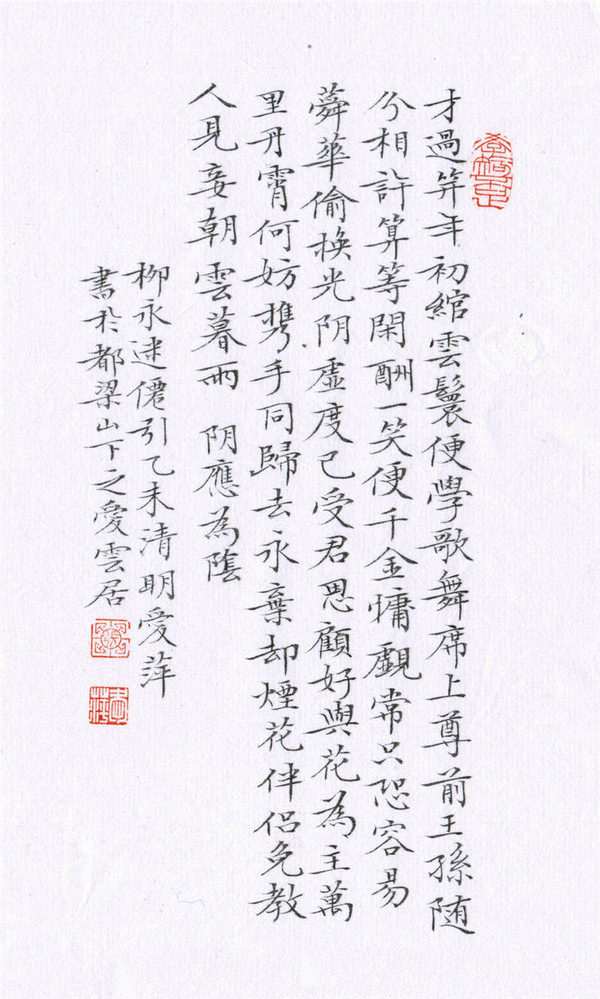 才過笄年初綰雲鬟便學歌舞席上尊前王孫随
分相許算等閑酬一笑便千金慵覷常只恐容易
蕣華偷換光阴虛度已受君恩顧好與花為主萬
里丹霄何妨携手同歸去永棄却煙花伴侶免教
人見妾朝雲暮雨 阴應為蔭
柳永迷僊引乙未清明愛萍
書於都梁山下之愛雲居